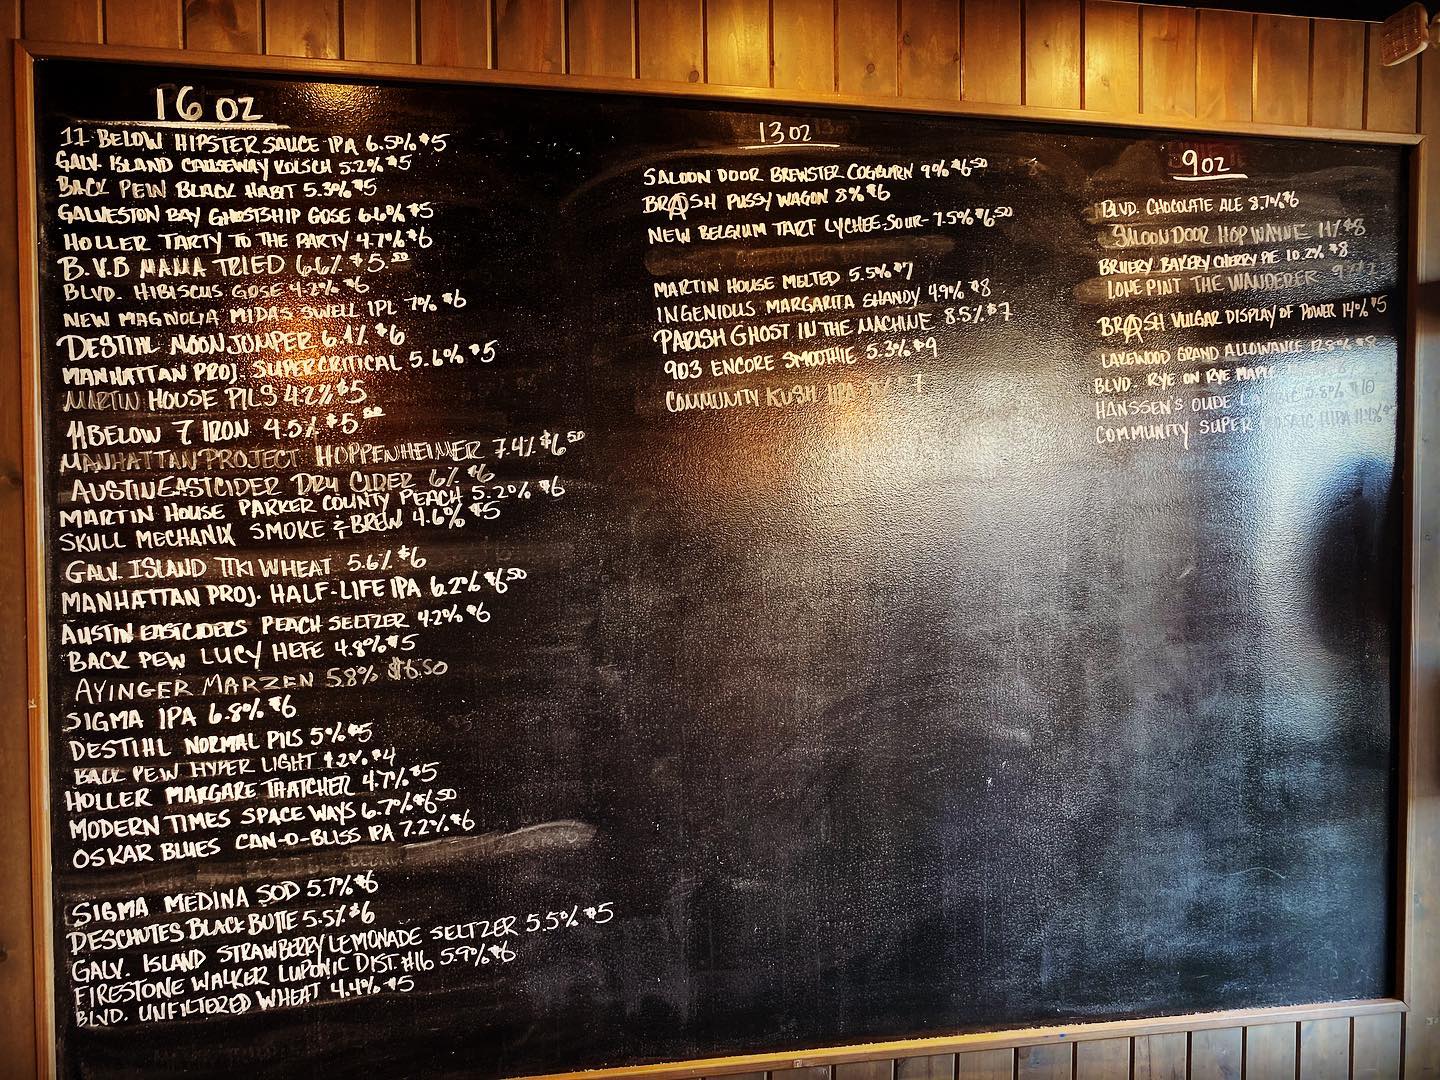 16 OZ
11 BELOW HIPSTER SAUCE IPA 6.50% $5
GALV. ISLAND CAUSEWAY KOLSCH 5.2% $5
BACK PEW BLACK HABIT 5.3% $5
GALVESTON BAY GHOSTSHIP GOSE 6.6% $5
HOLLER TARTY TO THE PARTY 4.7% $6
B.V.B MAMA TRIED 6.6% $5.50
BLVD. HIBISCUS GOSE 4.2% $6
NEW MAGNOLIA MIDAS SWELL IPL 7% $6
DESTIHL MOONJUMPER 6.1% $6
MANHATTAN PROJ. SUPERCRITICAL 5.6% $5
MARTIN HOUSE PILS 4.2% $5
11 BELOW 7 IRON 4.5% $5.00
MANHATTAN PROJECT HOPPENHEIMER 7.4% $6.50
AUSTIN EASTCIDER DRY CIDER 6% $6
MARTIN HOUSE PARKER COUNTY PEACH 5.20% $6
SKULL MECHANIX SMOKE & BREW 4.6% $5
GALV. ISLAND TIKI WHEAT 5.6% $6
MANHATTAN PROJ. HALF-LIFE IPA 6.2% $6.50
AUSTIN EASTCIDERS PEACH SELTZER 4.2% $6
BACK PEW LUCY HEFE 4.8% $5
AYINGER MARZEN 5.8% $6.50
SIGMA IPA 6.8% $6
DESTIHL NORMAL PILS 5% $5
BACK PEW HYPER LIGHT 4.2% $4
HOLLER MARGARE THATCHER 4.7% $5
MODERN TIMES SPACE WAYS 6.7% $6.50
OSKAR BLUES CAN-O-BLISS IPA 7.2% $6
SIGMA MEDINA SOD 5.7% $6
DESCHUTES BLACK BUTTE 5.5% $6
GALV. ISLAND STRAWBERRY LEMONADE SELTZER 5.5% $5
FIRESTONE WALKER LUPONIC DIST. #16 5.9% $6
BLVD. UNFILTERED WHEAT 4.4% $5
13 OZ
SALOON DOOR BREWSTER COGBURN 9% $6.50
BRASH PUSSY WAGON 8% $6
NEW BELGIUM TART LYCHEE-SOUR- 7.5% $6.50
MARTIN HOUSE MELTED 5.5% $7
INGENIOUS MARGARITA SHANDY 4.9% $8
PARISH GHOST IN THE MACHINE 8.5% $7
903 ENCORE SMOOTHIE 5.3% $9
COMMUNITY KUSH IPA
9 OZ
BLVD. CHOCOLATE ALE 8.7% $6
SALOON DOOR HOP WAYNE 11% $8
BRUERY BAKERY CHERRY PIE 10.2% $8
LONE PINT THE WANDERER
BRASH VULGAR DISPLAY OF POWER 14% $5
LAKEWOOD GRAND ALLOWANCE 12.8% $8
BLVD. RYE ON RYE MAPLE
HANSSEN'S OUDE 5.8% $10
COMMUNITY SUPER MOSAIC